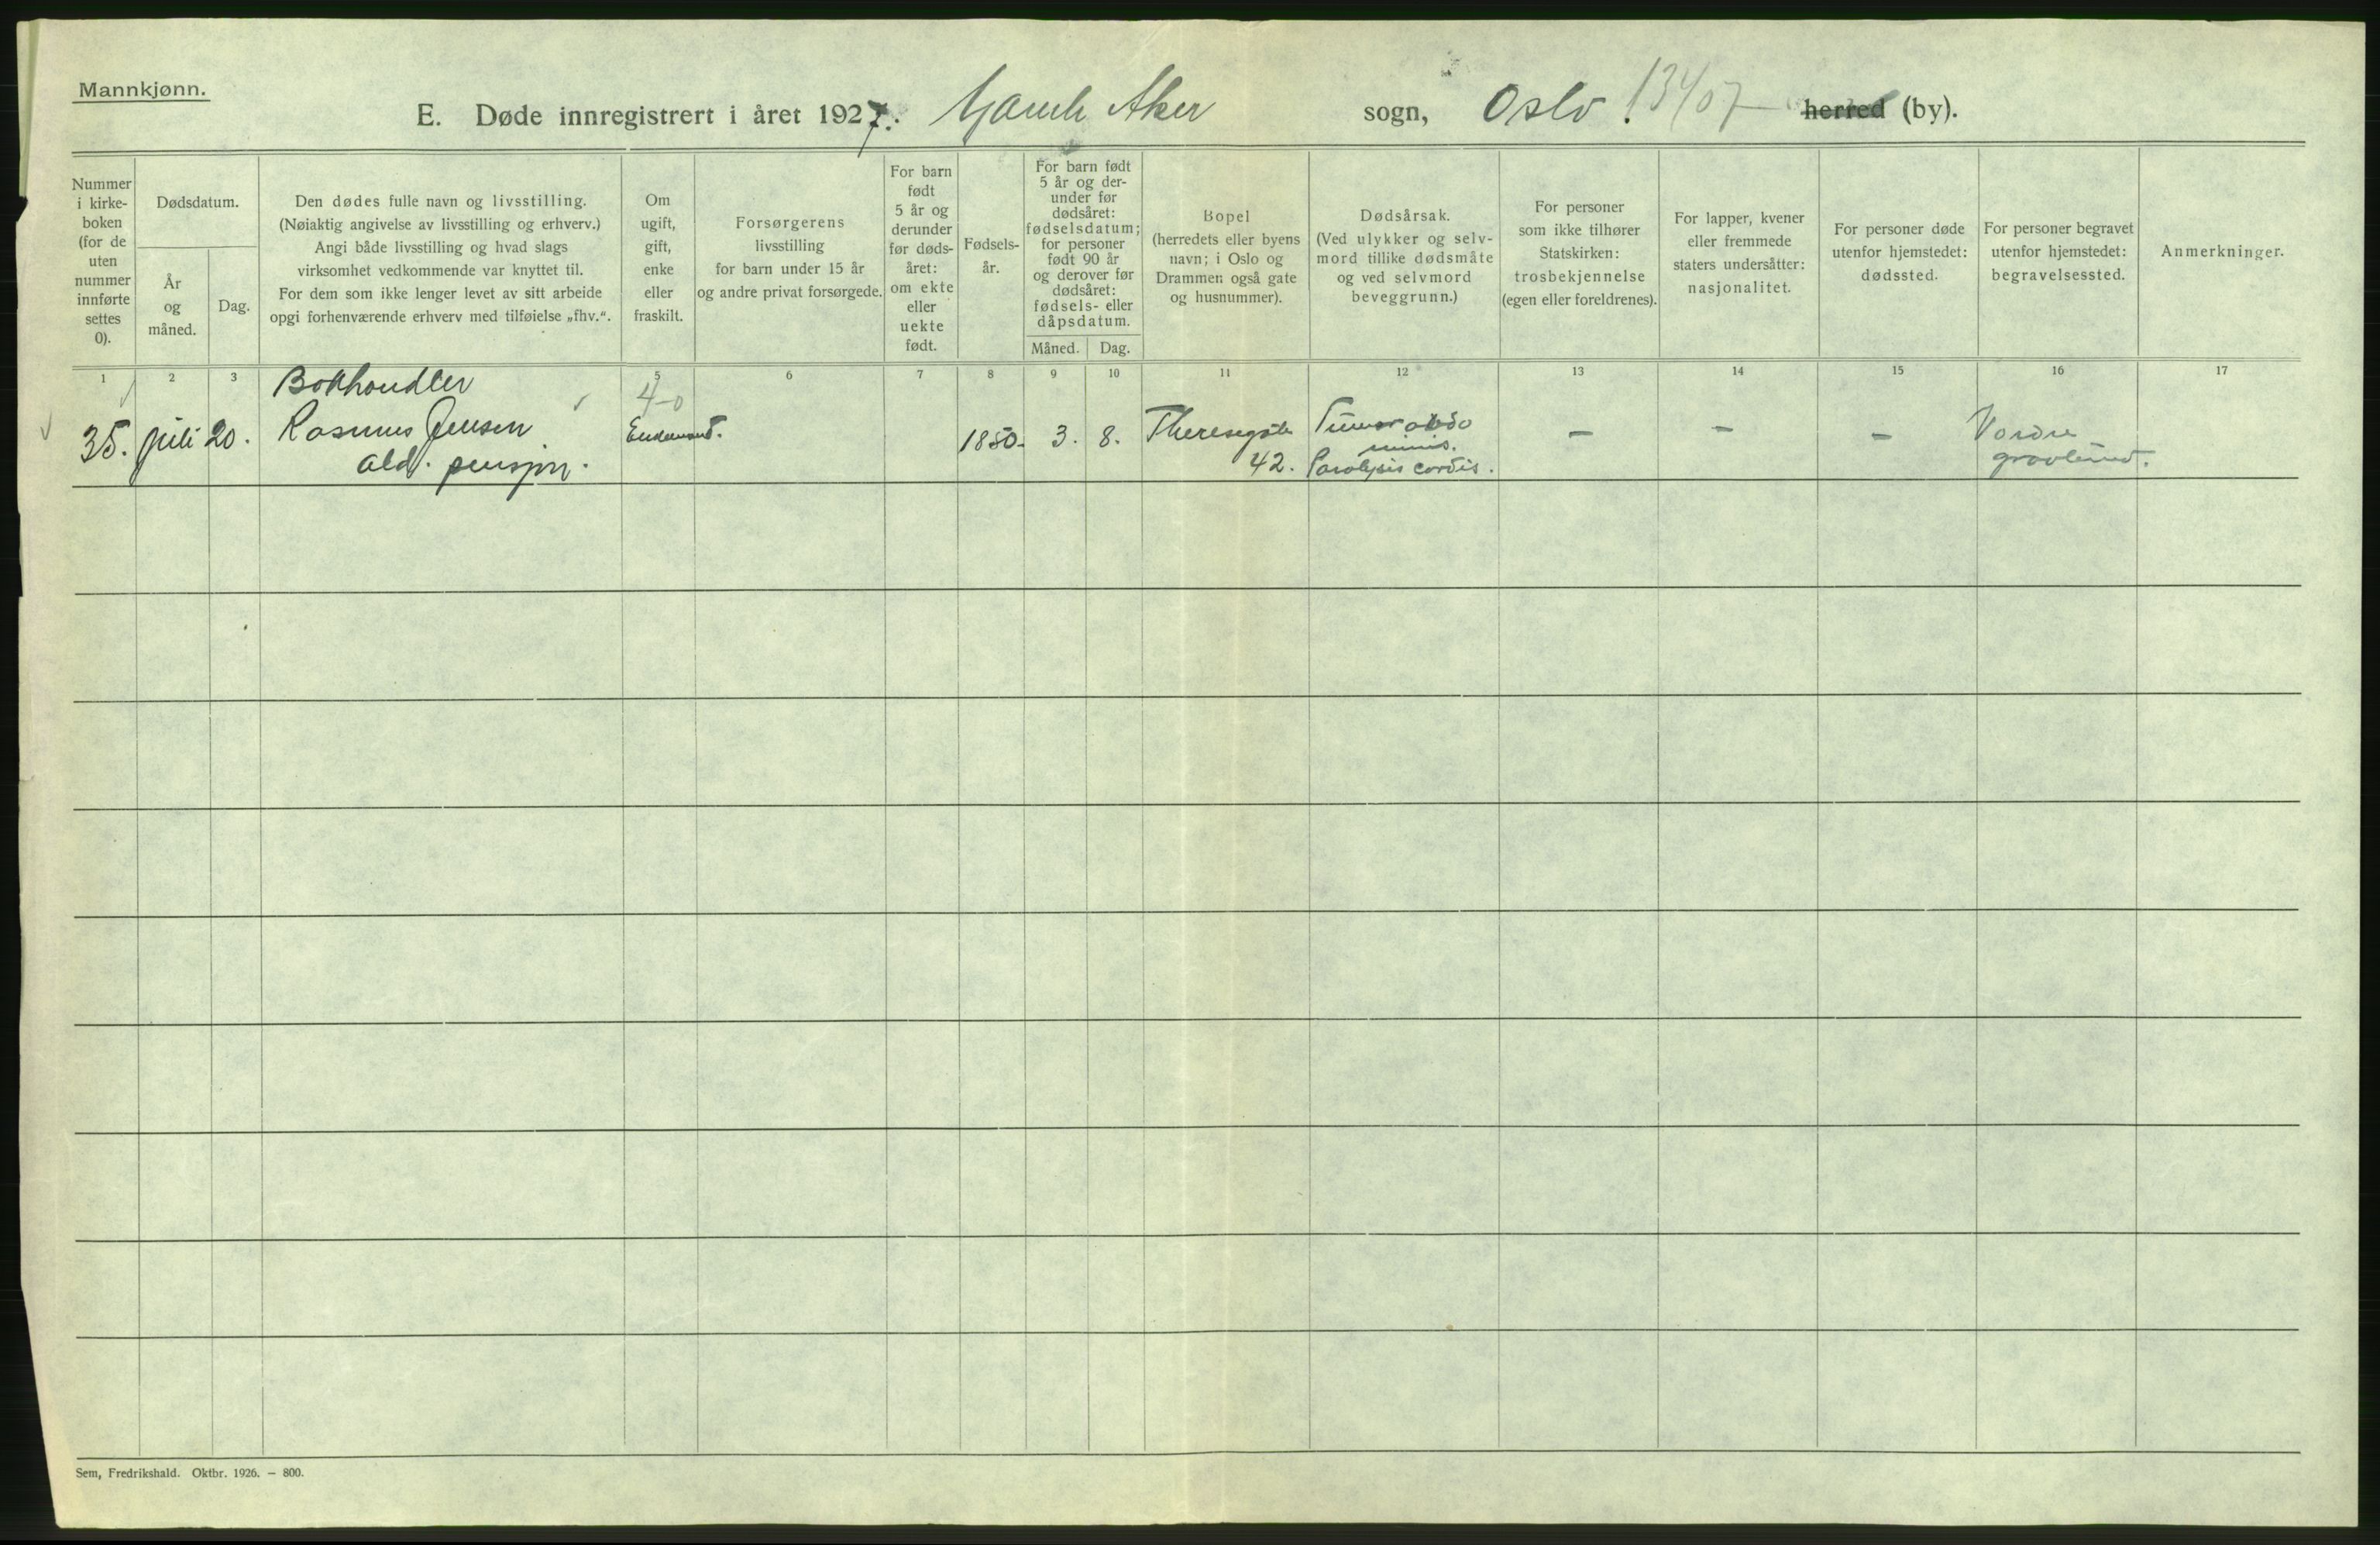 Mannkjønn.
E. Døde innregistrert i året 1927. Gamle Aker sogn, Oslo. 13407 herred (by).
Nummer
i kirke-
boken
(for de
uten
nummer
innførte
settes
0).
Dødsdatum.
År
og
måned.
Dag.
Den dødes fulle navn og livsstilling.
(Nøiaktig angivelse av livsstilling og erhverv.)
Angi både livsstilling og hvad slags
virksomhet vedkommende var knyttet til.
For dem som ikke lenger levet av sitt arbeide
opgi forhenværende erhverv med tilføielse „fhv.“.
Om
ugift,
gift,
enke
eller
fraskilt.
Forsørgerens
livsstilling
for barn under 15 år
og andre privat forsørgede.
For barn
født
5 år og
derunder
før døds-
året:
om ekte
eller
uekte
født.
Fødsels-
år.
For barn født
5 år og der-
under før
dødsåret:
fødselsdatum;
for personer
født 90 år
og derover før
dødsåret:
fødsels- eller
dåpsdatum.
Måned.
Dag.
Bopel
(herredets eller byens
navn; i Oslo og
Drammen også gate
og husnummer).
Dødsårsak.
(Ved ulykker og selv-
mord tillike dødsmåte
og ved selvmord
beveggrunn.)
For personer
som ikke tilhører
Statskirken:
trosbekjennelse
(egen eller foreldrenes).
For lapper, kvener
eller fremmede
staters undersåtter:
nasjonalitet.
For personer døde
utenfor hjemstedet:
dødssted.
For personer begravet
utenfor hjemstedet:
begravelsessted.
Anmerkninger.
1 2 3 5 6 7 8 9 10 11 12 13 14 15 16 17
35. juli 20.
Bokhandler
Rasmus Jensen
ald. pensjon.
4-0
Enkemand.
1850. 3. 8.
Theresegate
42.
Tumor abdo
minis.
Paralysis cordis.
– – –
Vordre
gravlund.
Sem, Fredrikshald. Oktbr. 1926. — 800.